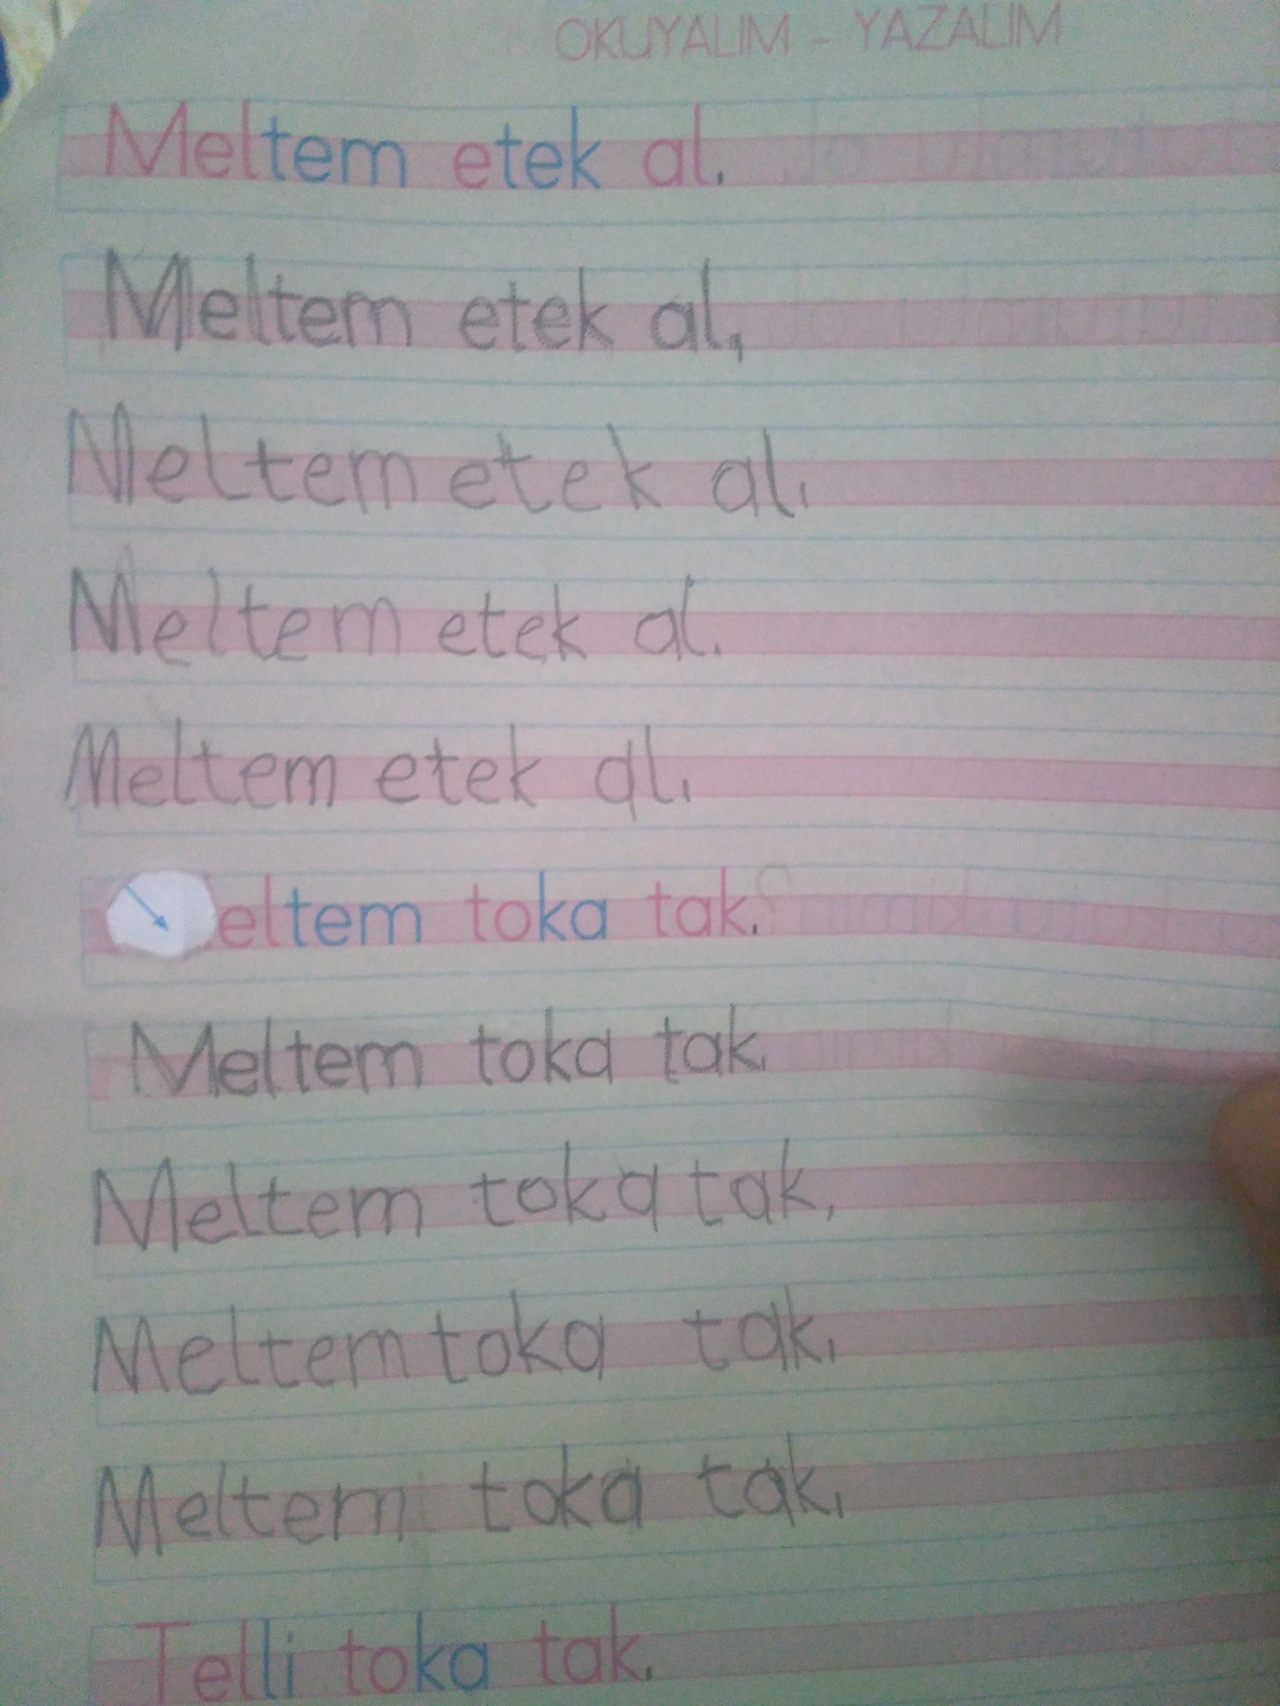 OKUYALIM - YAZALIM
Meltem etek al.
Meltem etek al,
Meltem etek al.
Meltem etek al.
Meltem etek al.
eltem toka tak.
Meltem toka tak.
Meltem toka tak,
Meltem toka tak.
Meltem toka tak.
Telli toka tak.